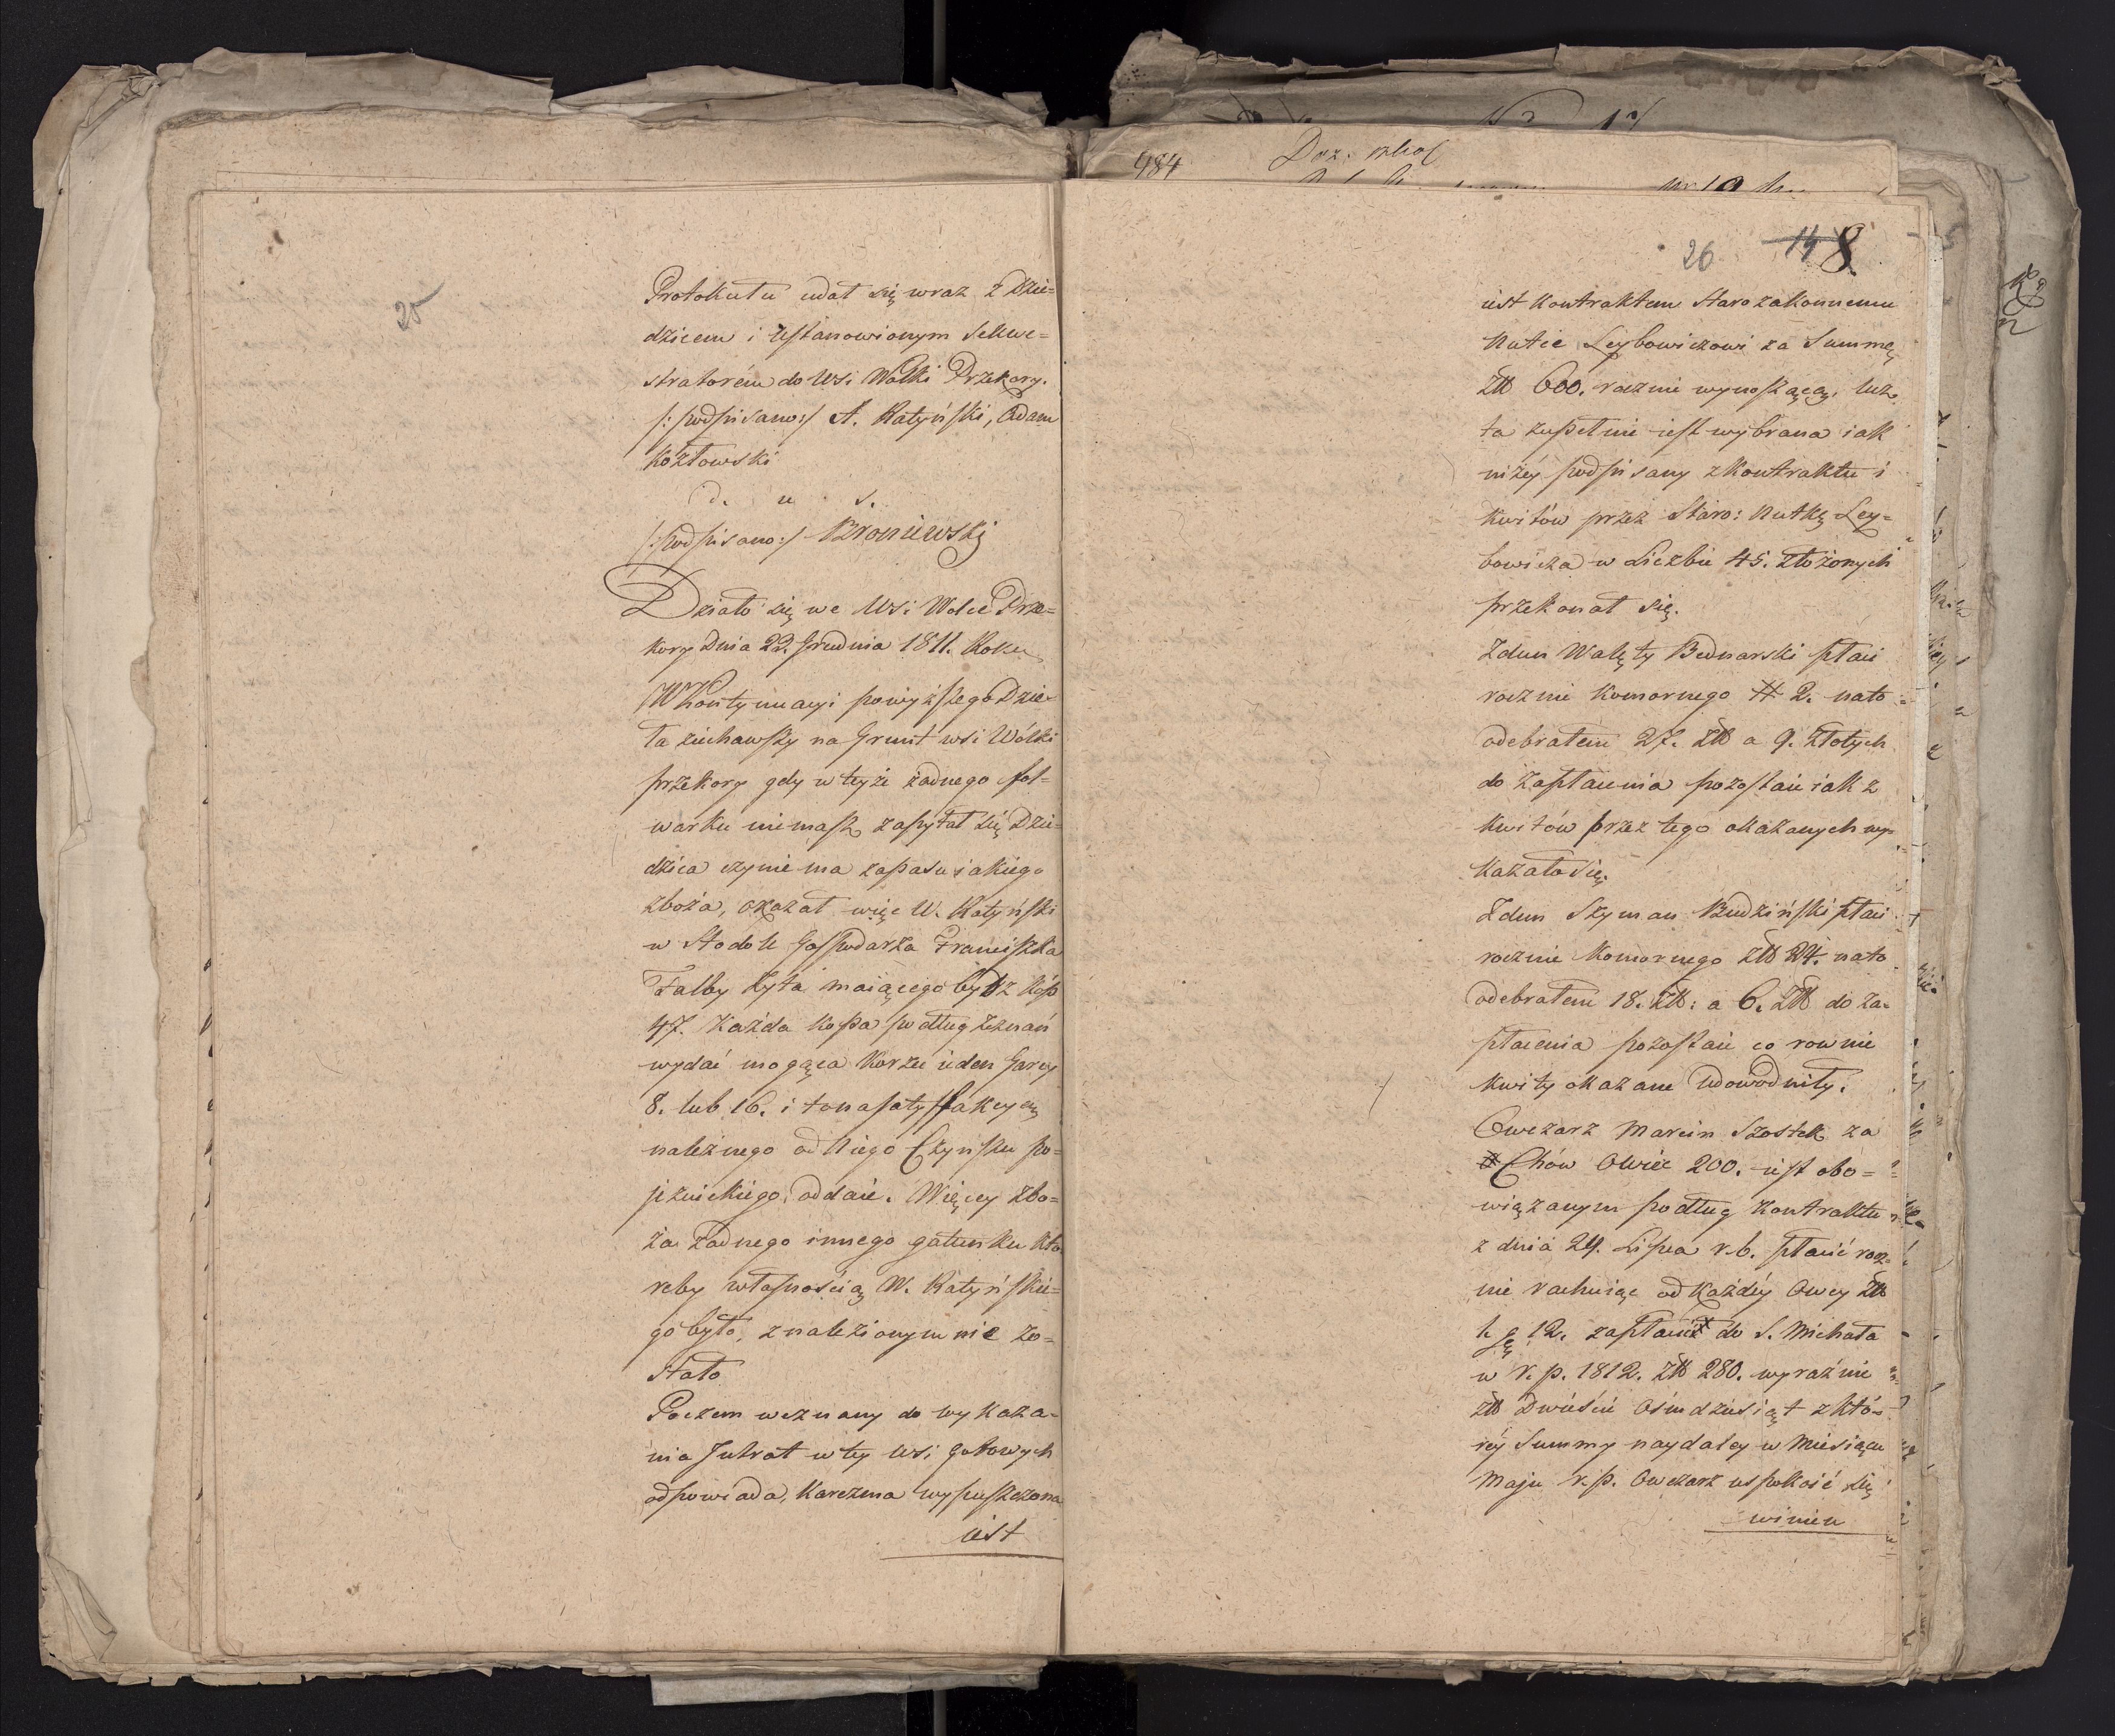 25
Protokułu udał się wraz z Dzie=
dzicem i Ustanowionym Sekwe=
stratorém do Wsi Wolki Przekory.
/: podpisano:/ A. Katyński, Adam
Kozłowski
d. u. s.
/:podpisano:/ Broniewski
Działo się we Wsi Wolce Prze=
kory Dnia 23. Grudnia 1811. Roku
W Kontynuacyi powyższego Dzie=
ła ziechawszy na Grunt wsi Wólki
przekory gdy w teyże żadnego fol=
warku niemasz zapytał się Dzie=
dzica czynie ma zapasu iakiego
zboża, okazał więc W. Katyński
w Stodole Gospodarza Franciszka
Falby Żyta maiącego bydz kóp
47. Każda kopa podług Zeznań
wydać mogąca Korzec ieden Garcy
8. lub 16. i to na satysfakcyą
należnego od niego Czynszu po=
jeznickiego oddaie. Więcey zbo=
ża żadnego innego gatunku któ
reby własnością W. Katyńskie=
go było, znalezionym nie zo=
stało
Poczem wezwany do wykaza=
nia Intrat w tey wsi gotowych
odpowiada, Karczma wypuszczona
iest
484
26 14 8
iest kontraktem Starozakonnemu
Nutce Leybowiczowi za Summę
Złt 600. rocznie wynoszącą, lecz
ta zupełnie iest wybrana iak
niżey podpisany z Kontraktu i
Kwitów przez Staro: Nutkę Ley=
bowicza w Liczbie 45. złożonych
przekonał się.
Zdun Walęty Bednarski płaci
rocznie komornego # 2. na to
odebrałem 27. Złt a 9. Złotych
do zapłacenia pozostaie iak z
kwitów przez tego okazanych wy=
kazało się.
Zdun Szyman Budziński płaci
rocznie Komornego złt 24. na to
odebrałem 18. Złt: a 6. Złt do za=
płacenia pozostaie co rownie
kwity okazane Udowodniły.
Owczarz Marcin Szostek za
Chów Owiec 200. iest obo=
wiązanym podług Kontraktu
z dnia 24. Lipca r. b. płacić rocz=
nie rachuiąc od każdéy Owcy Złt
1 g 12. zapłacić do S. Michała
w r. p. 1812. Złt 280. wyraźnie
Złt Dwieście Ośmdziesiąt z któ=
réy Summy naydaley w Miesiącu
Maju r. p. Owczarz uspokoić się
winien